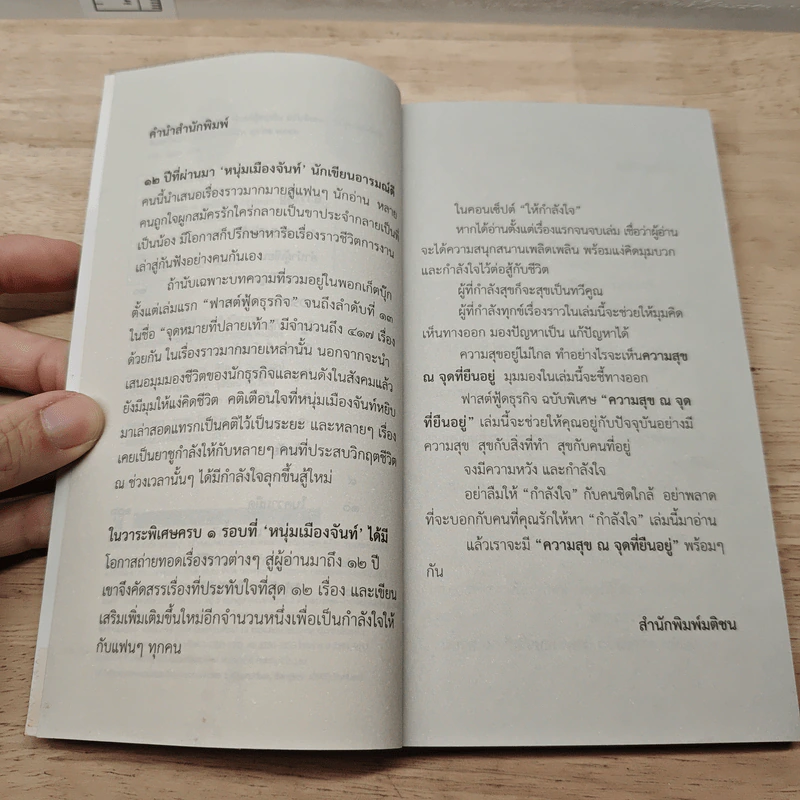 คำนำสำนักพิมพ์
๑๒ ปีที่ผ่านมา ‘หนุ่มเมืองจันท์’ นักเขียนอารมณ์ดี
คนนี้นำเสนอเรื่องราวมากมายสู่แฟนๆ นักอ่าน หลาย
คนถูกใจผูกสมัครรักใคร่กลายเป็นขาประจำกลายเป็นพี่
เป็นน้อง มีโอกาสก็ปรึกษาหารือเรื่องราวชีวิตการงาน
เล่าสู่กันฟังอย่างคนกันเอง
ถ้านับเฉพาะบทความที่รวมอยู่ในพอกเก็ตบุ๊ก
ตั้งแต่เล่มแรก “ฟาสต์ฟู้ดธุรกิจ” จนถึงลำดับที่ ๑๓
ในชื่อ “จุดหมายที่ปลายเท้า” มีจำนวนถึง ๔๑๗ เรื่อง
ด้วยกัน ในเรื่องราวมากมายเหล่านั้น นอกจากจะนำ
เสนอมุมมองชีวิตของนักธุรกิจและคนดังในสังคมแล้ว
ยังมีมุมให้แง่คิดชีวิต คติเตือนใจที่หนุ่มเมืองจันท์หยิบ
มาเล่าสอดแทรกเป็นคติไว้เป็นระยะ และหลายๆ เรื่อง
เคยเป็นยาชูกำลังให้กับหลายๆ คนที่ประสบวิกฤตชีวิต
ณ ช่วงเวลานั้นๆ ได้มีกำลังใจลุกขึ้นสู้ใหม่
ในวาระพิเศษครบ ๑ รอบที่ ‘หนุ่มเมืองจันท์’ ได้มี
โอกาสถ่ายทอดเรื่องราวต่างๆ สู่ผู้อ่านมาถึง ๑๒ ปี
เขาจึงคัดสรรเรื่องที่ประทับใจที่สุด ๑๒ เรื่อง และเขียน
เสริมเพิ่มเติมขึ้นใหม่อีกจำนวนหนึ่งเพื่อเป็นกำลังใจให้
กับแฟนๆ ทุกคน
ในคอนเซ็ปต์ “ให้กำลังใจ”
หากได้อ่านตั้งแต่เรื่องแรกจนจบเล่ม เชื่อว่าผู้อ่าน
จะได้ความสนุกสนานเพลิดเพลิน พร้อมแง่คิดมุมบวก
และกำลังใจไว้ต่อสู้กับชีวิต
ผู้ที่กำลังสุขก็จะสุขเป็นทวีคูณ
ผู้ที่กำลังทุกข์เรื่องราวในเล่มนี้จะช่วยให้มุมคิด
เห็นทางออก มองปัญหาเป็น แก้ปัญหาได้
ความสุขอยู่ไม่ไกล ทำอย่างไรจะเห็นความสุข
ณ จุดที่ยืนอยู่ มุมมองในเล่มนี้จะชี้ทางออก
ฟาสต์ฟู้ดธุรกิจ ฉบับพิเศษ “ความสุข ณ จุด
ที่ยืนอยู่” เล่มนี้จะช่วยให้คุณอยู่กับปัจจุบันอย่างมี
ความสุข สุขกับสิ่งที่ทำ สุขกับคนที่อยู่
จงมีความหวัง และกำลังใจ
อย่าลืมให้ “กำลังใจ” กับคนชิดใกล้ อย่าพลาด
ที่จะบอกกับคนที่คุณรักให้หา “กำลังใจ” เล่มนี้มาอ่าน
แล้วเราจะมี “ความสุข ณ จุดที่ยืนอยู่” พร้อมๆ
กัน
สำนักพิมพ์มติชน